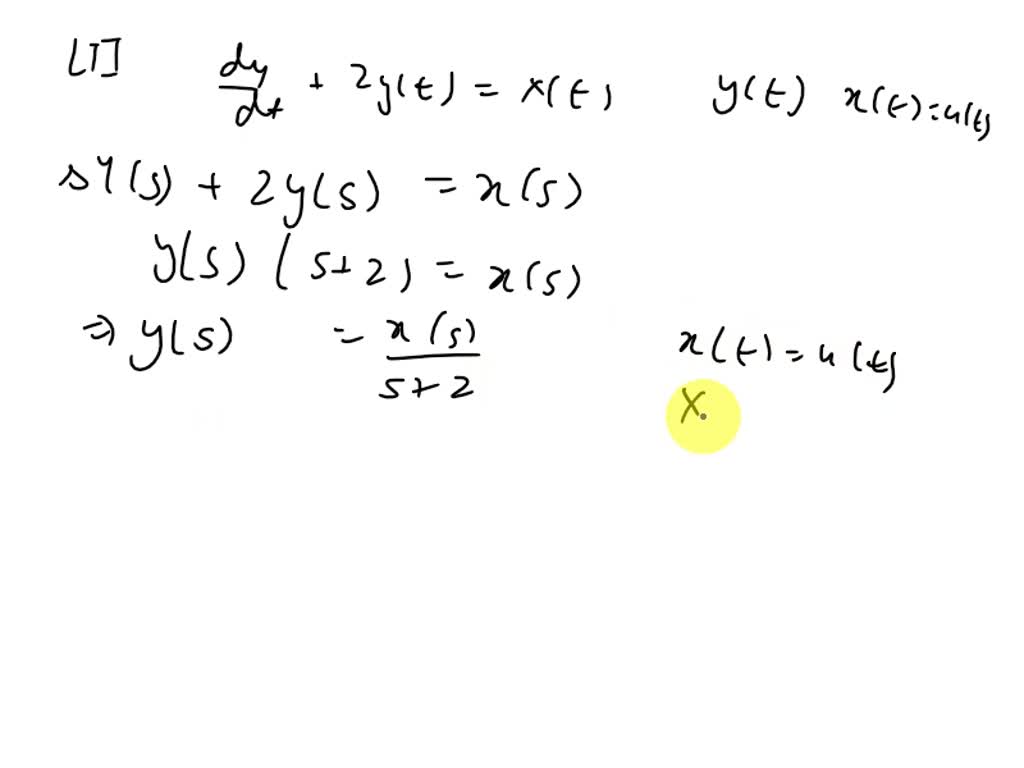 [I] dy/dt + 2y(t) = x(t) y(t) x(t)=u(t)
sY(s) + 2y(s) = x(s)
y(s) (s+2) = x(s)
⇒ y(s) = x(s)/s+2 x(t) = u(t)
X